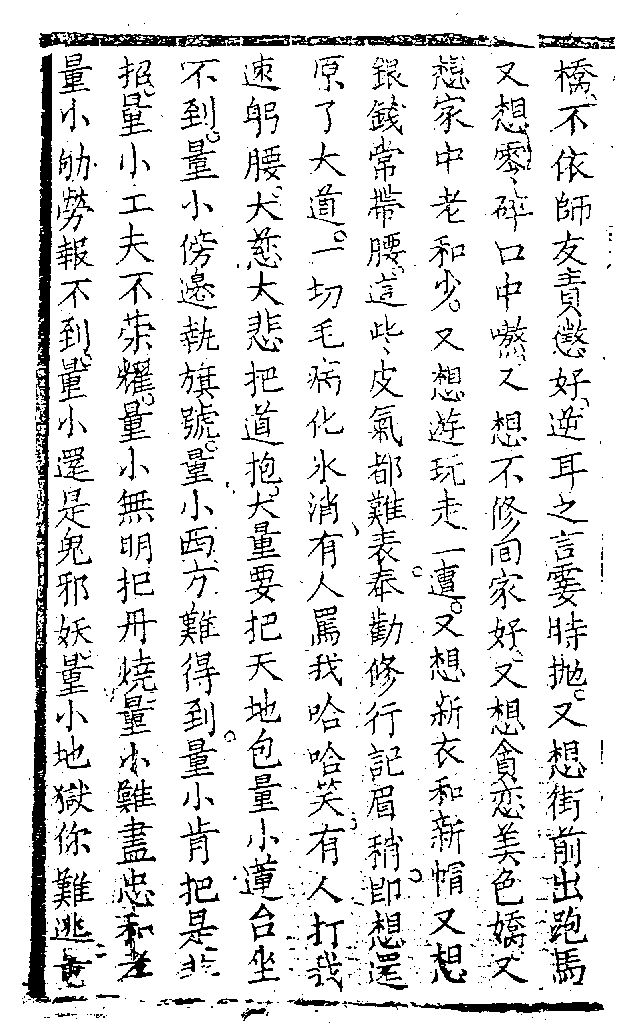 橋不依師友責懲好逆耳之言霎時抛又想街前出跑馬
又想零碎口中嚼又想不修囬家好又想貪恋美色嬌又
想家中老和少又想遊玩走一遭又想新衣和新帽又想
銀錢常帶腰這些皮氣都難表奉勸修行記眉稍即想還
原了大道一切毛病化氷消有人罵我哈哈笑有人打我
速躬腰大慈大悲把道抱大量要把天地包量小蓮台坐
不到量小傍邊執旗號量小西方難得到量小肯把是非
招量小工夫不荣耀量小無明把丹燒量小難盡忠和孝
量小劬勞報不到量小還是鬼邪妖量小地獄你難逃